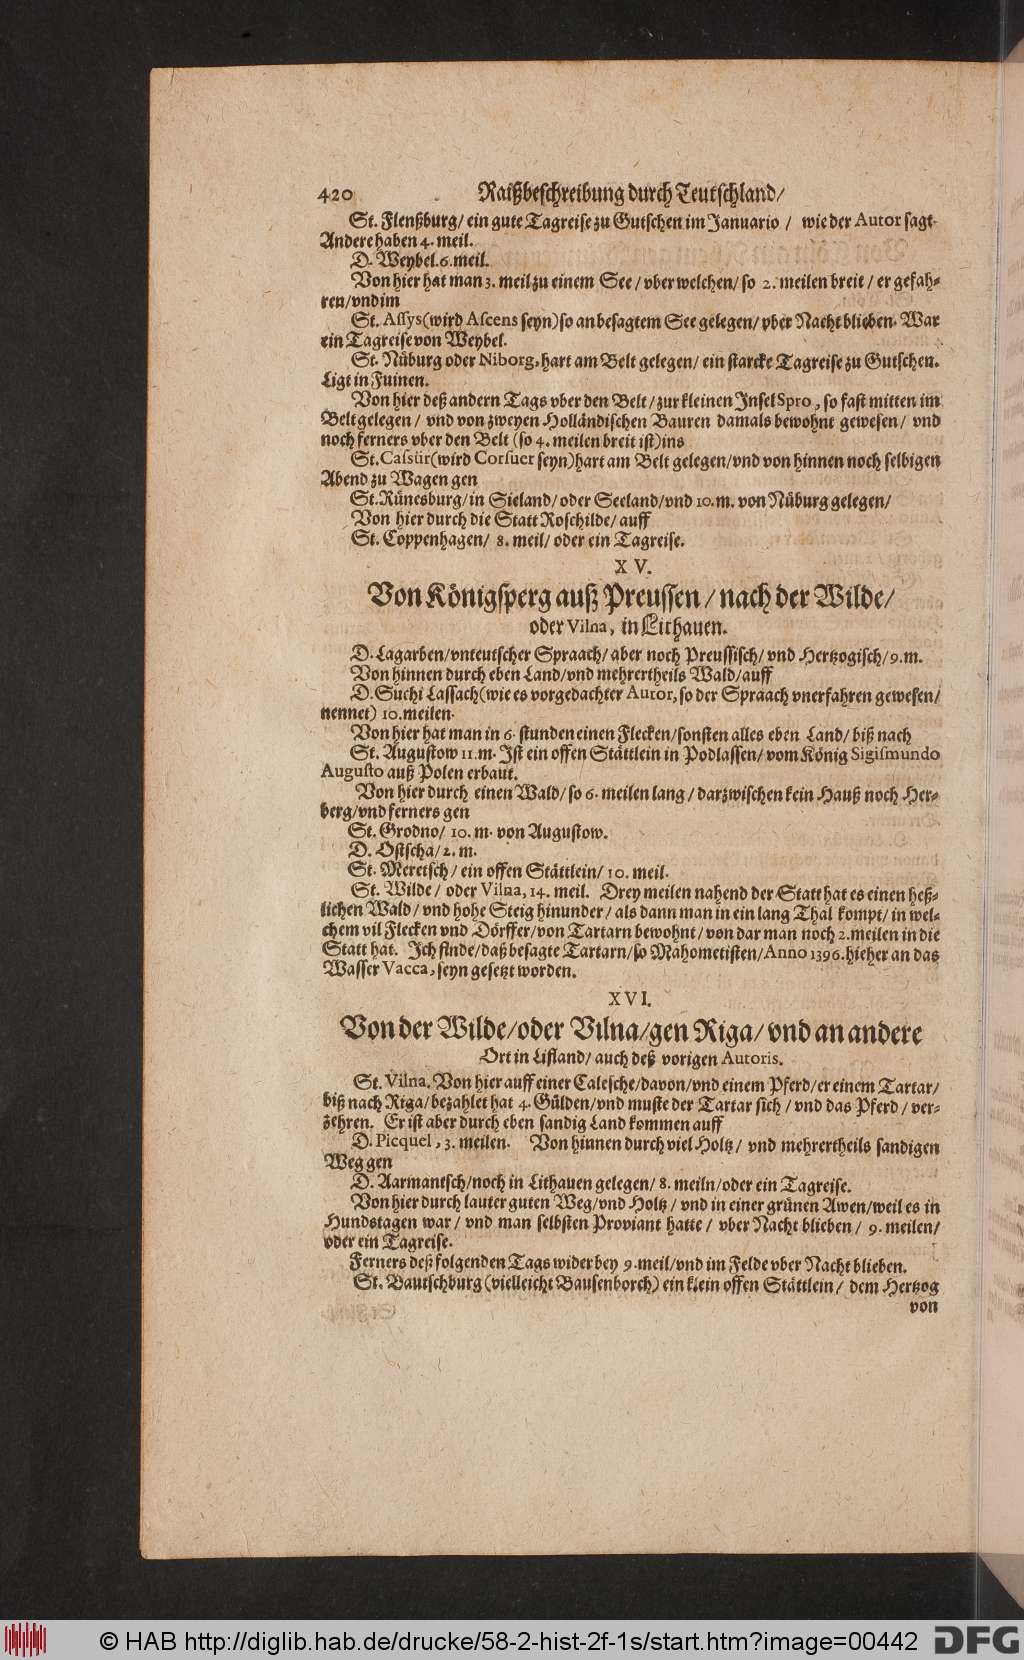 420 Raißbeschreibung durch Teutschland/
St. Flenßburg/ ein gute Tagreise zu Gutschen im Januario / wie der Autor sagt.
Andere haben 4. meil.
D. Weybel. 6. meil.
Von hier hat man 3. meil zu einem See / vber welchen/ so 2. meilen breit / er gefah-
ren/vnd im
St. Assys (wird Ascens seyn) so an besagtem See gelegen/ vber Nacht blieben. War
ein Tagreise von Weybel.
St. Nüburg oder Niborg, hart am Belt gelegen/ ein starcke Tagreise zu Gutschen.
Ligt in Fuinen.
Von hier deß andern Tags vber den Belt / zur kleinen Insel Spro, so fast mitten im
Belt gelegen / vnd von zweyen Holländischen Bauren damals bewohnt gewesen / vnd
noch ferners vber den Belt (so 4. meilen breit ist) ins
St. Cassür (wird Corsuer seyn) hart am Belt gelegen/vnd von hinnen noch selbigen
Abend zu Wagen gen
St. Rünesburg/ in Sieland/ oder Seeland/vnd 10. m. von Nüburg gelegen/
Von hier durch die Statt Roschilde/ auff
St. Coppenhagen/ 8. meil/ oder ein Tagreise.
XV.
Von Königsperg auß Preussen / nach der Wilde/
oder Vilna, in Lithauen.
D. Lagarben/vnteutscher Spraach/ aber noch Preussisch/ vnd Hertzogisch/ 9. m.
Von hinnen durch eben Land/vnd mehrertheils Wald/auff
D. Suchi Lassach (wie es vorgedachter Autor, so der Spraach vnerfahren gewesen/
nennet) 10. meilen.
Von hier hat man in 6. stunden einen Flecken/sonsten alles eben Land/ biß nach
St. Augustow 11. m. Ist ein offen Stättlein in Podlassen/ vom König Sigismundo
Augusto auß Polen erbaut.
Von hier durch einen Wald/ so 6. meilen lang / darzwischen kein Hauß noch Her-
berg/vnd ferners gen
St. Grodno/ 10. m. von Augustow.
D. Ostscha/ 2. m.
St. Meretsch / ein offen Stättlein/ 10. meil.
St. Wilde / oder Vilna, 14. meil. Drey meilen nahend der Statt hat es einen heß-
lichen Wald / vnd hohe Steig hinunder / als dann man in ein lang Thal kompt/ in wel-
chem vil Flecken vnd Dörffer/von Tartarn bewohnt / von dar man noch 2. meilen in die
Statt hat. Ich finde/daß besagte Tartarn/so Mahometisten/Anno 1396. hieher an das
Wasser Vacca, seyn gesetzt worden.
XVI.
Von der Wilde/oder Vilna/gen Riga/ vnd an andere
Ort in Lifland/ auch deß vorigen Autoris.
St. Vilna. Von hier auff einer Calesche/davon/vnd einem Pferd/er einem Tartar/
biß nach Riga/bezahlet hat 4. Gülden/vnd muste der Tartar sich / vnd das Pferd / ver-
zehren. Er ist aber durch eben sandig Land kommen auff
D. Picquel, 3. meilen. Von hinnen durch viel Holtz / vnd mehrertheils sandigen
Weg gen
D. Aarmantsch/noch in Lithauen gelegen/ 8. meiln/oder ein Tagreise.
Von hier durch lauter guten Weg/vnd Holtz / vnd in einer grünen Awen/weil es in
Hundstagen war / vnd man selbsten Proviant hatte / vber Nacht blieben / 9. meilen/
oder ein Tagreise.
Ferners deß folgenden Tags wider bey 9. meil/vnd im Felde vber Nacht blieben.
St. Bautschburg (vielleicht Bausenborch) ein klein offen Stättlein/ dem Hertzog
von
© HAB http://diglib.hab.de/drucke/58-2-hist-2f-1s/start.htm?image=00442 DFG